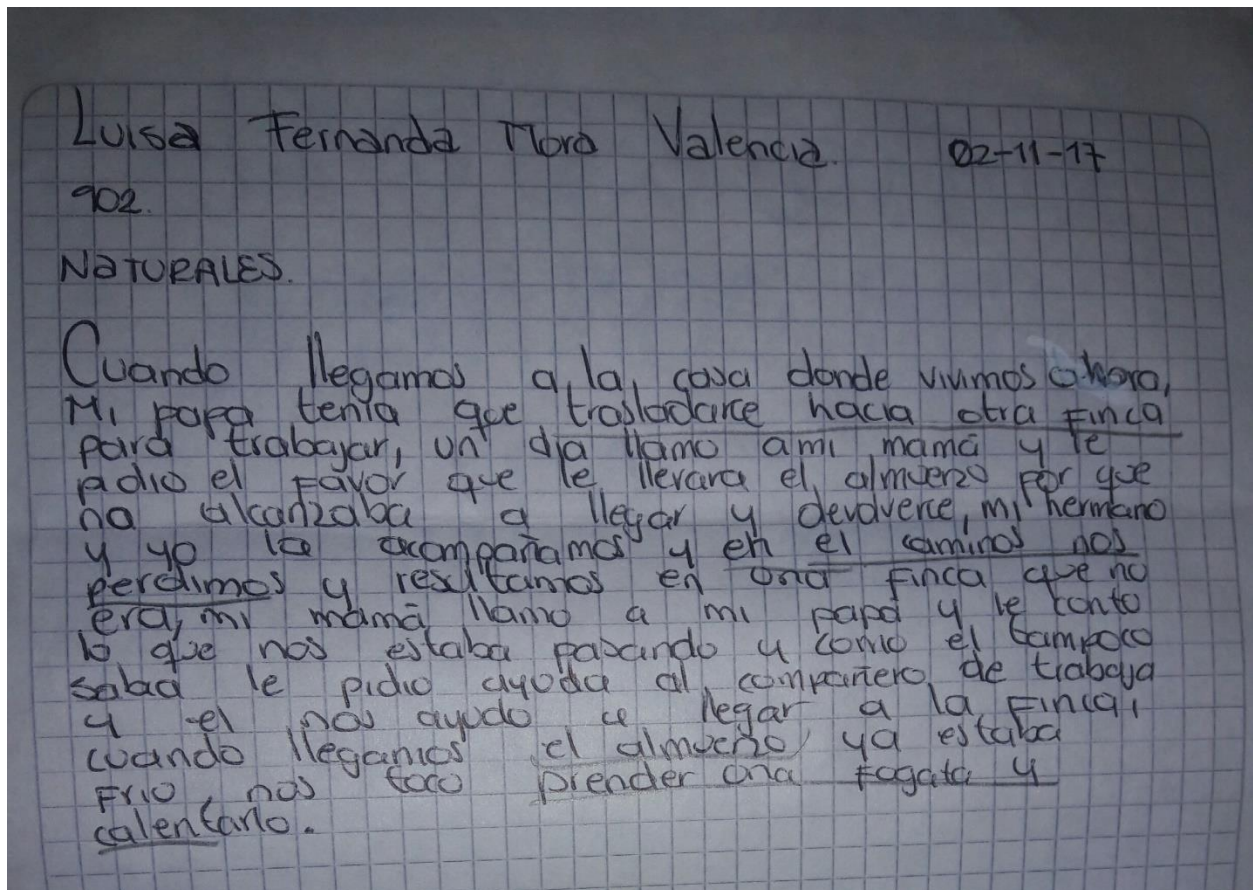 Luisa Fernanda Mora Valencia. 02-11-17
902.
NATURALES.
Cuando llegamos a la casa donde vivimos ahora,
Mi papa tenia que trasladarce hacia otra Finca
para trabajar, un dia llamo ami mamá y le
pidio el Favor que le llevara el almuerzo por que
no alcanzaba a llegar y devolverce, mi hermano
y yo la acompañamos y en el caminos nos
perdimos y resultamos en una Finca que no
era, mi mamá llamo a mi papá y le conto
lo que nos estaba pasando y como el tampoco
sabia le pidio ayuda al compañero de trabajo
y el nos ayudo a llegar a la Finca,
cuando llegamos el almuerzo ya estaba
Frio, nos toco prender una Fogata y
calentarlo.